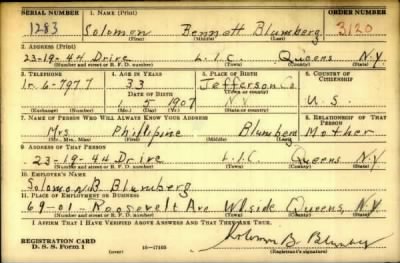 SERIAL NUMBER 1. NAME (Print) ORDER NUMBER
1283 Solomon Bennett Blumberg 3120
(First) (Middle) (Last)
2. ADDRESS (Print)
23-19-44 Drive L.I.C. Queens N.Y.
(Number and street or R. F. D. number) (Town) (County) (State)
3. TELEPHONE 4. AGE IN YEARS 5. PLACE OF BIRTH 6. COUNTRY OF CITIZENSHIP
33 Jefferson Co.
DATE OF BIRTH
Ir. 6-7977 1 5 1907 N.Y. U.S.
(Exchange) (Number) (Mo.) (Day) (Yr.) (State or country)
7. NAME OF PERSON WHO WILL ALWAYS KNOW YOUR ADDRESS 8. RELATIONSHIP OF THAT PERSON
Mrs. Phillipine Blumberg Mother
(Mr., Mrs., Miss) (First) (Middle) (Last)
9. ADDRESS OF THAT PERSON
23-19-44 Drive L.I.C. Queens N.Y.
(Number and street or R. F. D. number) (Town) (County) (State)
10. EMPLOYER'S NAME
Solomon B. Blumberg
11. PLACE OF EMPLOYMENT OR BUSINESS
69-01- Roosevelt Ave Wdside Queens, N.Y.
(Number and street or R. F. D. number) (Town) (County) (State)
I AFFIRM THAT I HAVE VERIFIED ABOVE ANSWERS AND THAT THEY ARE TRUE.
REGISTRATION CARD
D. S. S. Form 1 (over) 16-17105 Solomon B. Blumberg
(Registrant's signature)